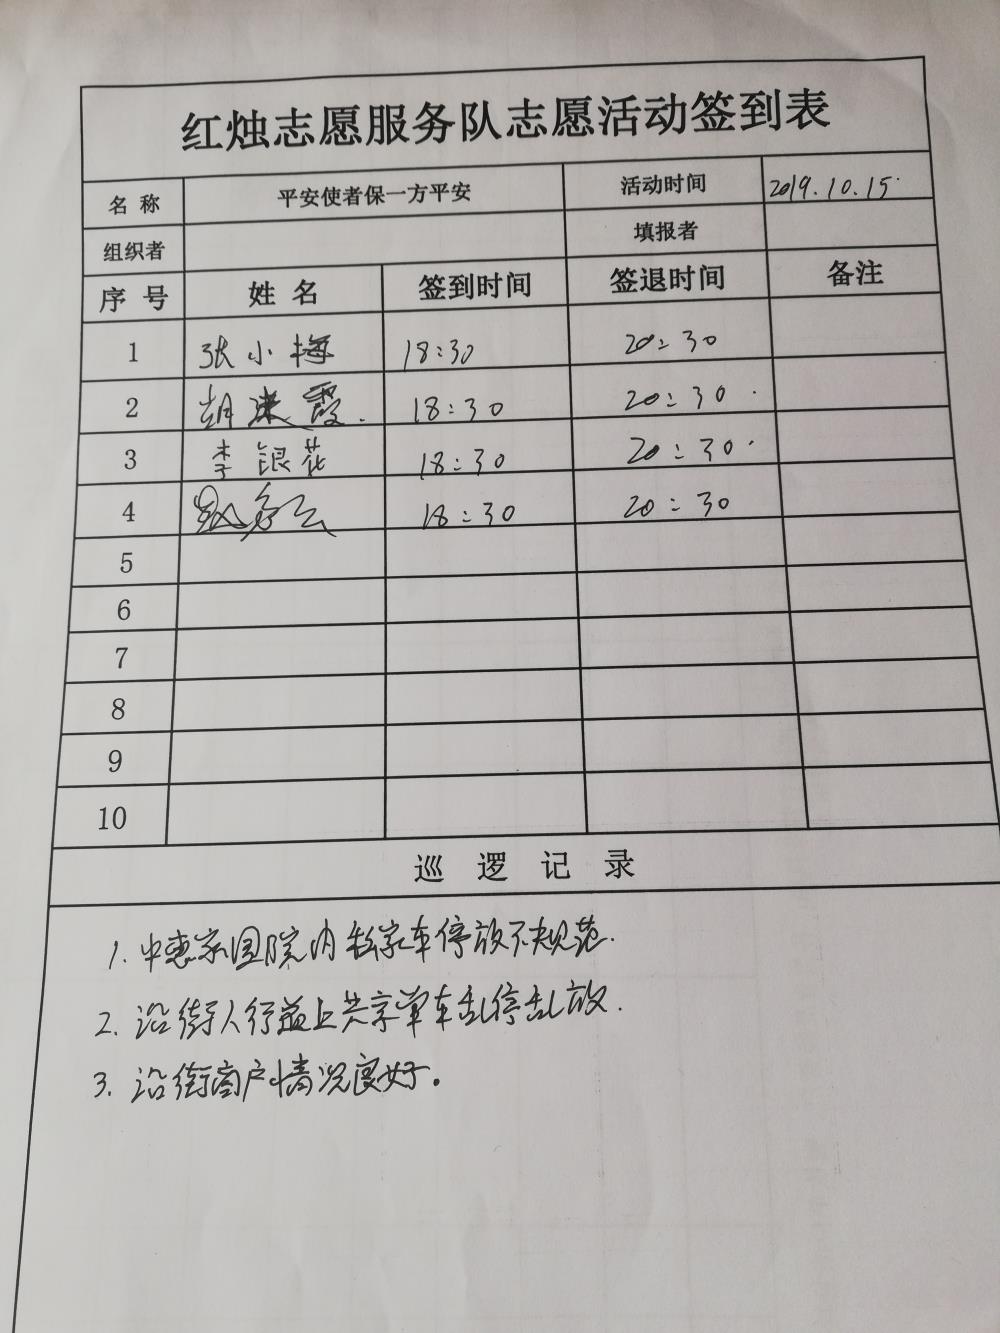 红烛志愿服务队志愿活动签到表
名 称 平安使者保一方平安 活动时间 2019.10.15.
组织者 填报者
序 号 姓 名 签到时间 签退时间 备注
1 张小梅 18:30 20:30
2 胡 霞. 18:30 20:30
3 李银花 18:30 20:30
4 18:30 20:30
5
6
7
8
9
10
巡 逻 记 录
1. 中惠家园院内私家车停放不规范.
2. 沿街人行道上共享单车乱停乱放.
3. 沿街商户情况良好。